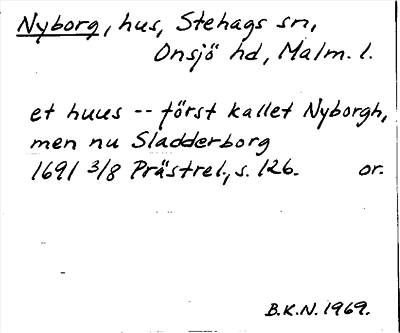 Nyborg, hus, Stehags sn,
Onsjö hd, Malm. l.
et huus -- först kallet Nyborgh,
men nu Sladderborg
1691 3/8 Prästrel., s. 126. or.
B.K.N. 1969.